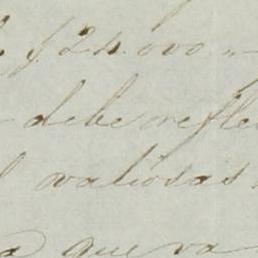 $ 24.000 „
debe refle
valiosas
que va